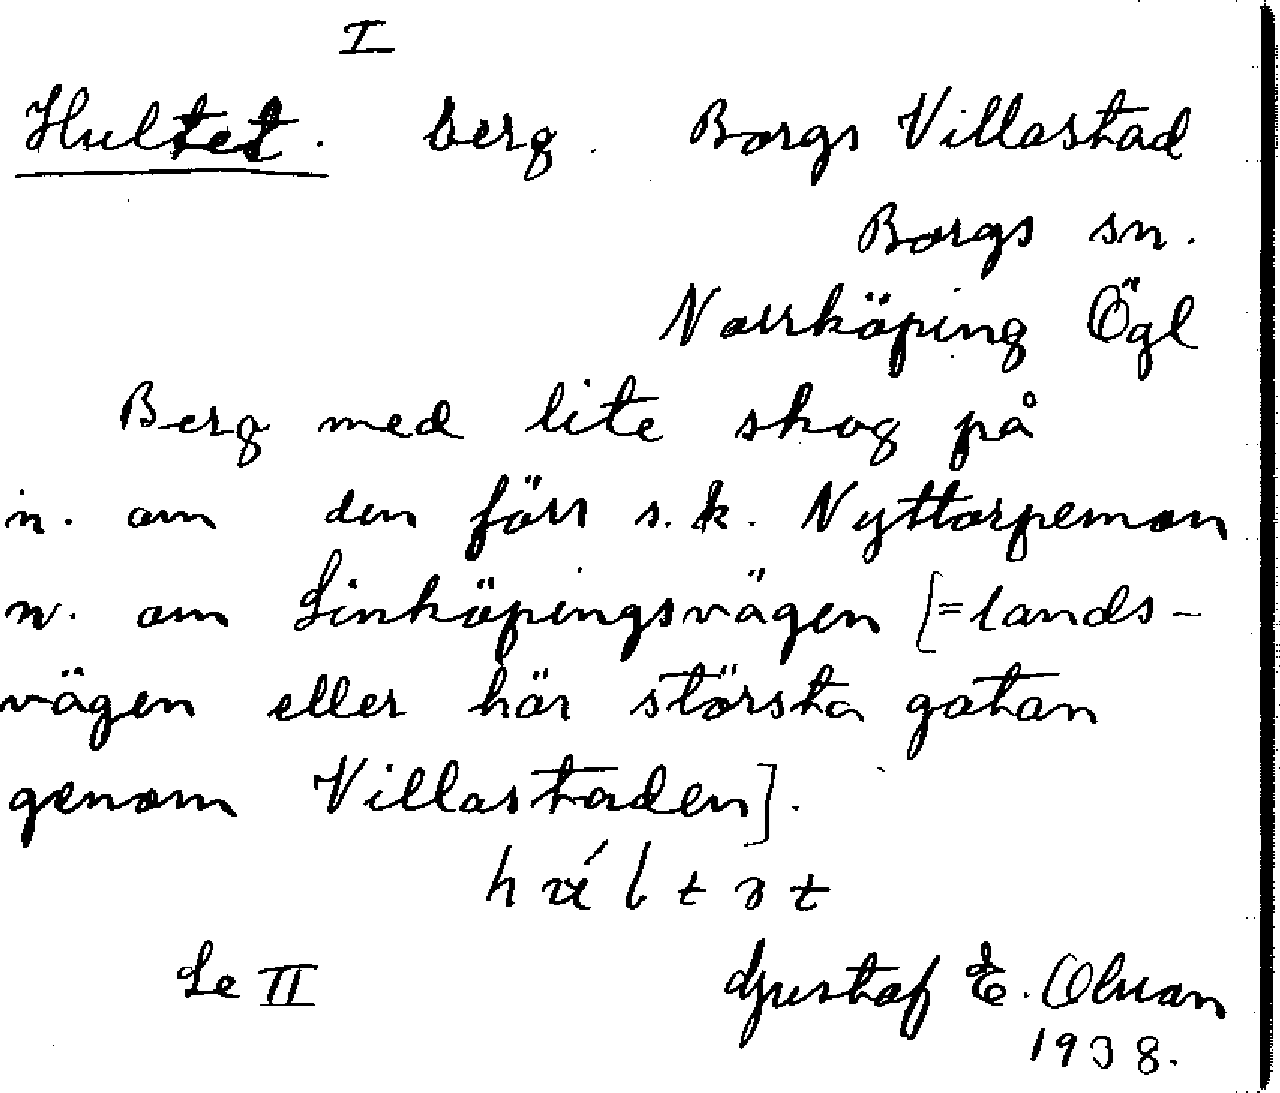 I
Hultet. berg. Borgs Villastad
Borgs sn.
Norrköping Ögl
Berg med lite skog på
n. om den förr s.k. Nyttorpemon
n. om Linköpingsvägen [=lands-
vägen eller här största gatan
genom Villastaden].
Se II Gustaf E. Olsson
1938.